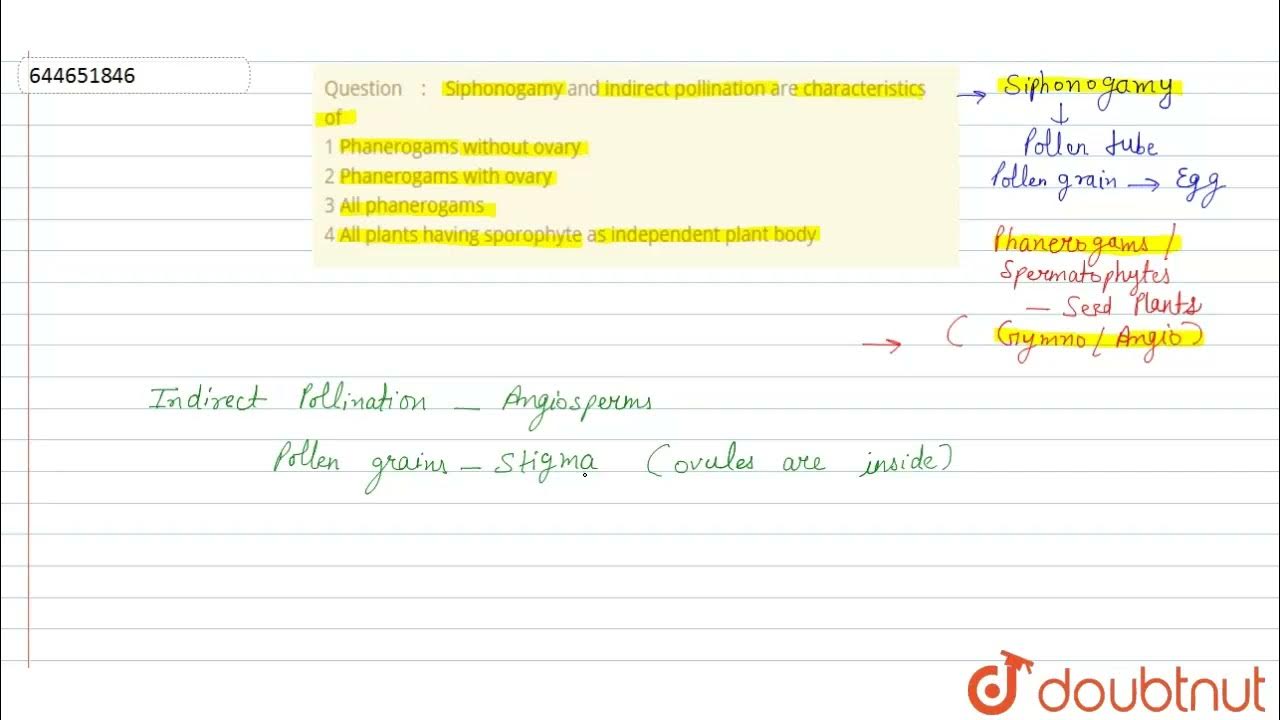 644651846
Question : Siphonogamy and indirect pollination are characteristics
of
1 Phanerogams without ovary
2 Phanerogams with ovary
3 All phanerogams
4 All plants having sporophyte as independent plant body
→ Siphonogamy
↓
Pollen tube
Pollen grain → Egg
Phanerogams /
Spermatophytes
— Seed Plants
→ ( Gymno / Angio )
Indirect Pollination — Angiosperms
Pollen grains — Stigma (ovules are inside)
doubtnut